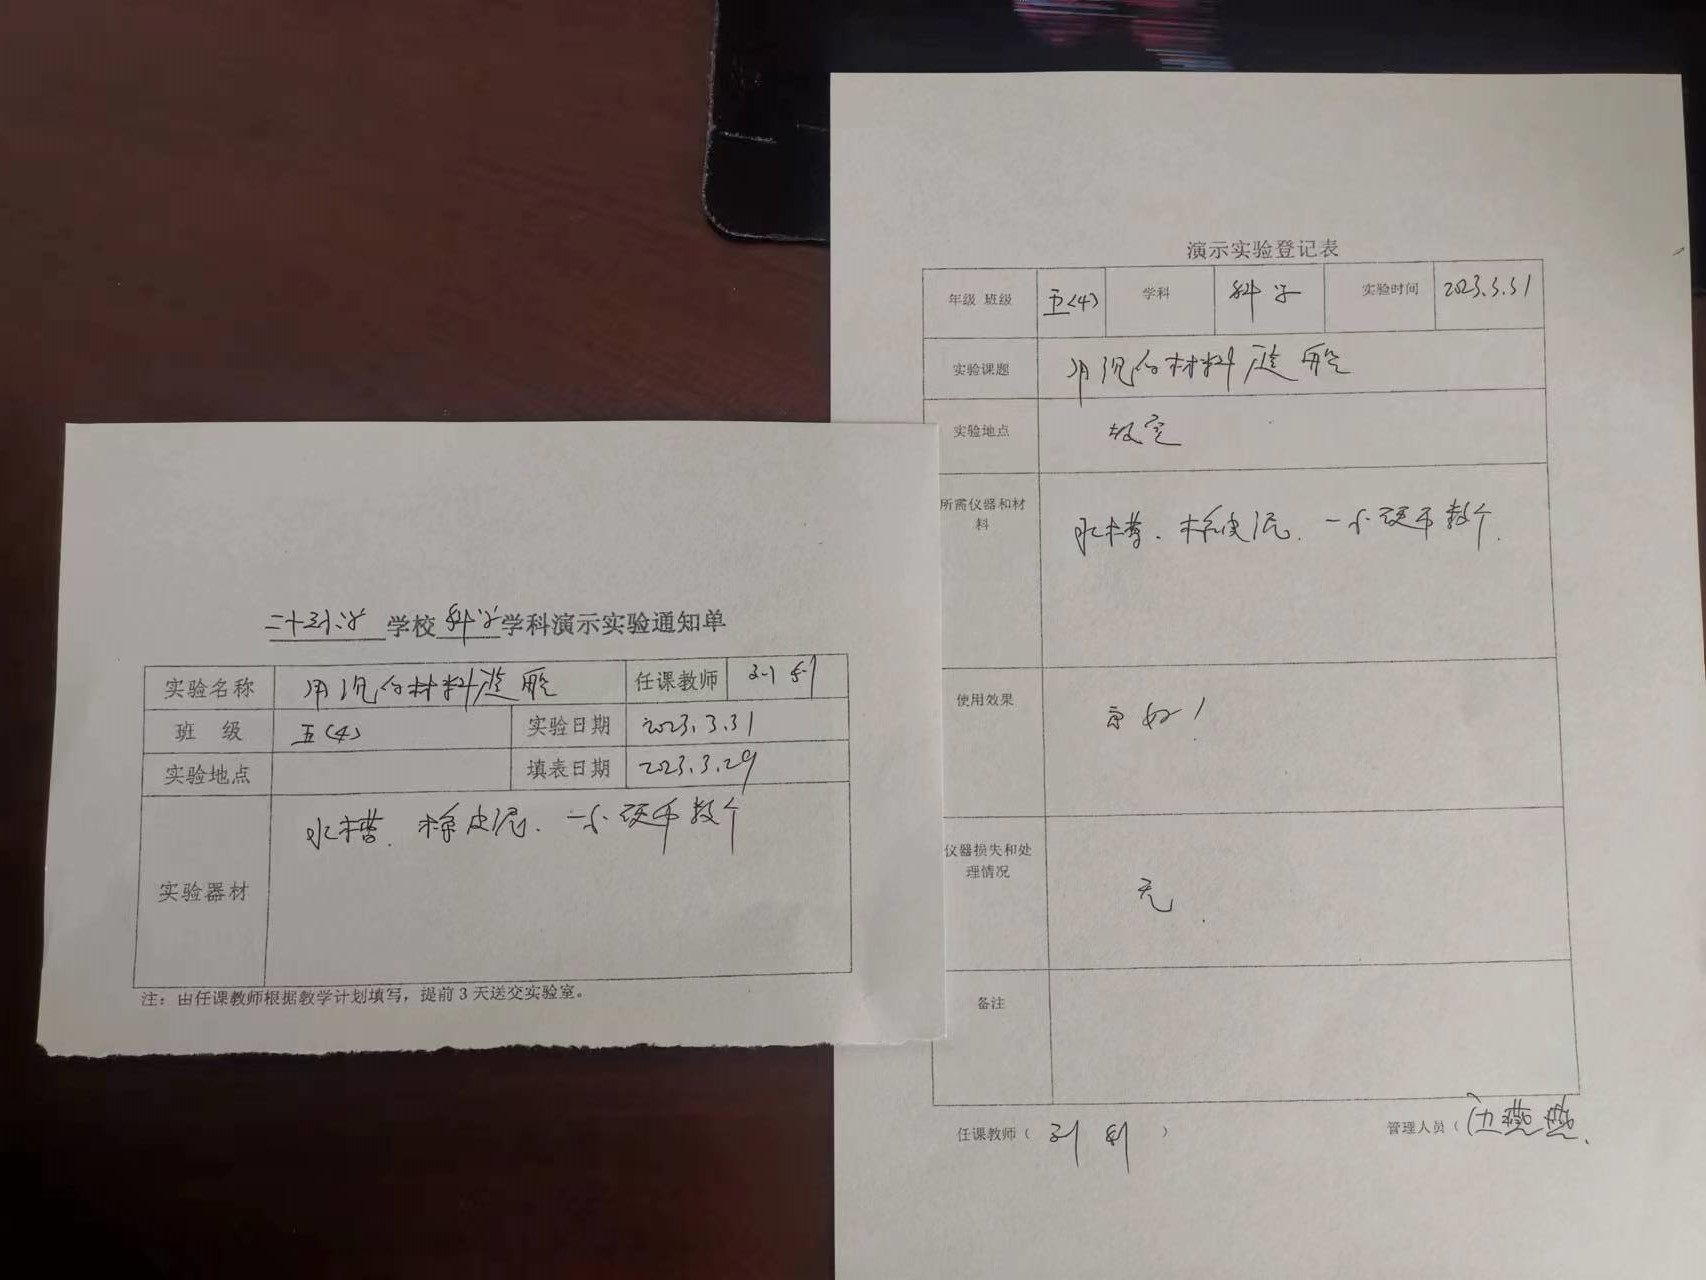 学校 科学 学科演示实验通知单
实验名称 用沉的材料造船 任课教师
班 级 五(4) 实验日期 2023.3.31
实验地点 填表日期 2023.3.29
实验器材 水槽、橡皮泥、一小硬币数个
注：由任课教师根据教学计划填写，提前3天送交实验室。
演示实验登记表
年级 班级 五(4) 学科 科学 实验时间 2023.3.31
实验课题 用沉的材料造船
实验地点 教室
所需仪器和材
料
水槽、橡皮泥、一小硬币数个
使用效果 良好！
仪器损失和处
理情况
无.
备注
任课教师（ ） 管理人员（ 燕燕